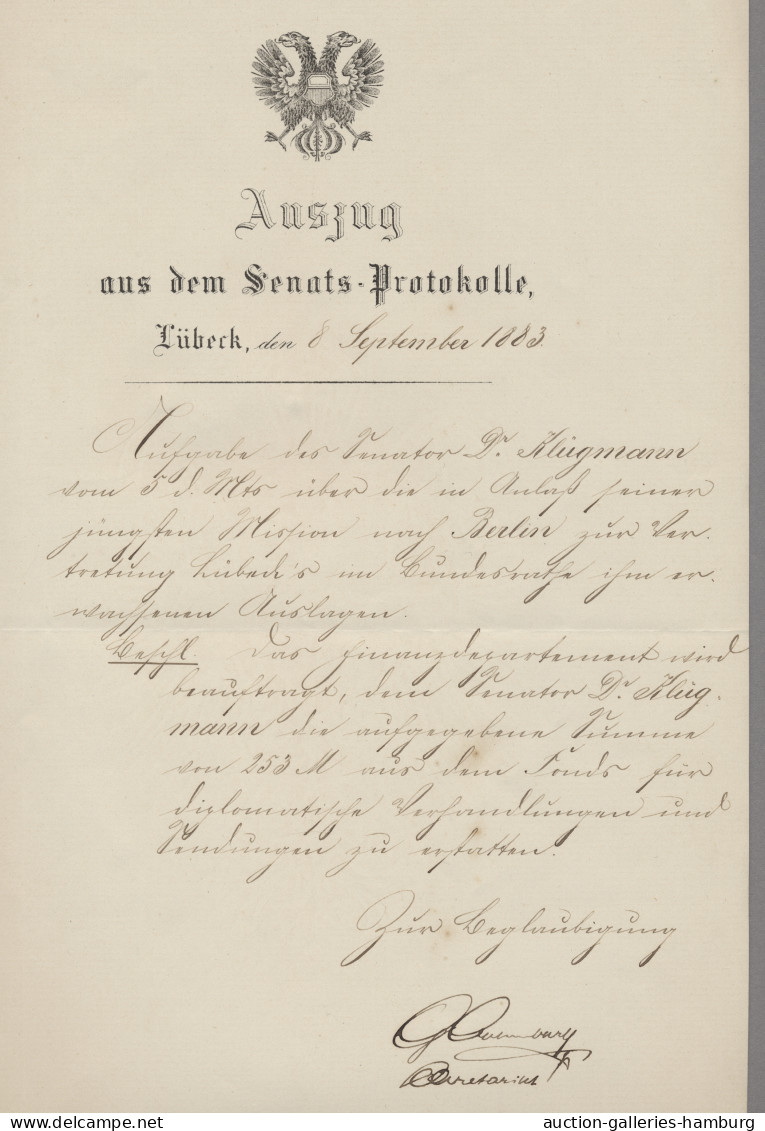 Auszug
aus dem Senats-Protokolle,
Lübeck, den 8 September 1883.
Aufgabe des Senator Dr. Klügmann
vom 5 d. Mts über die in Anlaß seiner
jüngsten Mission nach Berlin zur Ver-
tretung Lübeck's im Bundesrathe ihm er-
wachsenen Auslagen.
Beschl. Das Finanzdepartement wird
beauftragt, dem Senator Dr. Klüg-
mann die aufgegebene Summe
von 253 M aus dem Fonds für
diplomatische Verhandlungen und
Sendungen zu erstatten.
Zur Beglaubigung
Secretarius
auction-galleries-hamburg